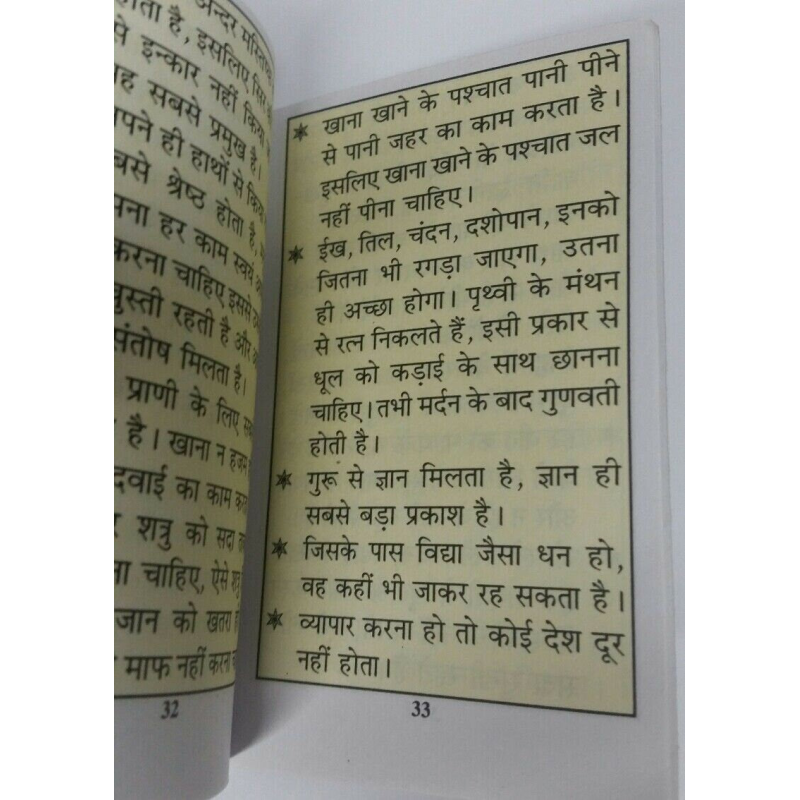 अन्दर
है, इसलिए सिर
से इन्कार नहीं किया
सबसे प्रमुख है।
ही हाथों से
श्रेष्ठ होता है,
हर काम स्वयं
करना चाहिए इससे
रहती है और
संतोष मिलता है।
प्राणी के लिए
है। खाना न हजम
दवाई का काम
शत्रु को सदा
चाहिए, ऐसे
जान को खतरा
माफ नहीं करना
32
✶ खाना खाने के पश्चात पानी पीने
से पानी जहर का काम करता है।
इसलिए खाना खाने के पश्चात जल
नहीं पीना चाहिए।
✶ ईख, तिल, चंदन, दशोपान, इनको
जितना भी रगड़ा जाएगा, उतना
ही अच्छा होगा। पृथ्वी के मंथन
से रत्न निकलते हैं, इसी प्रकार से
धूल को कड़ाई के साथ छानना
चाहिए। तभी मर्दन के बाद गुणवती
होती है।
✶ गुरू से ज्ञान मिलता है, ज्ञान ही
सबसे बड़ा प्रकाश है।
✶ जिसके पास विद्या जैसा धन हो,
वह कहीं भी जाकर रह सकता है।
✶ व्यापार करना हो तो कोई देश दूर
नहीं होता।
33